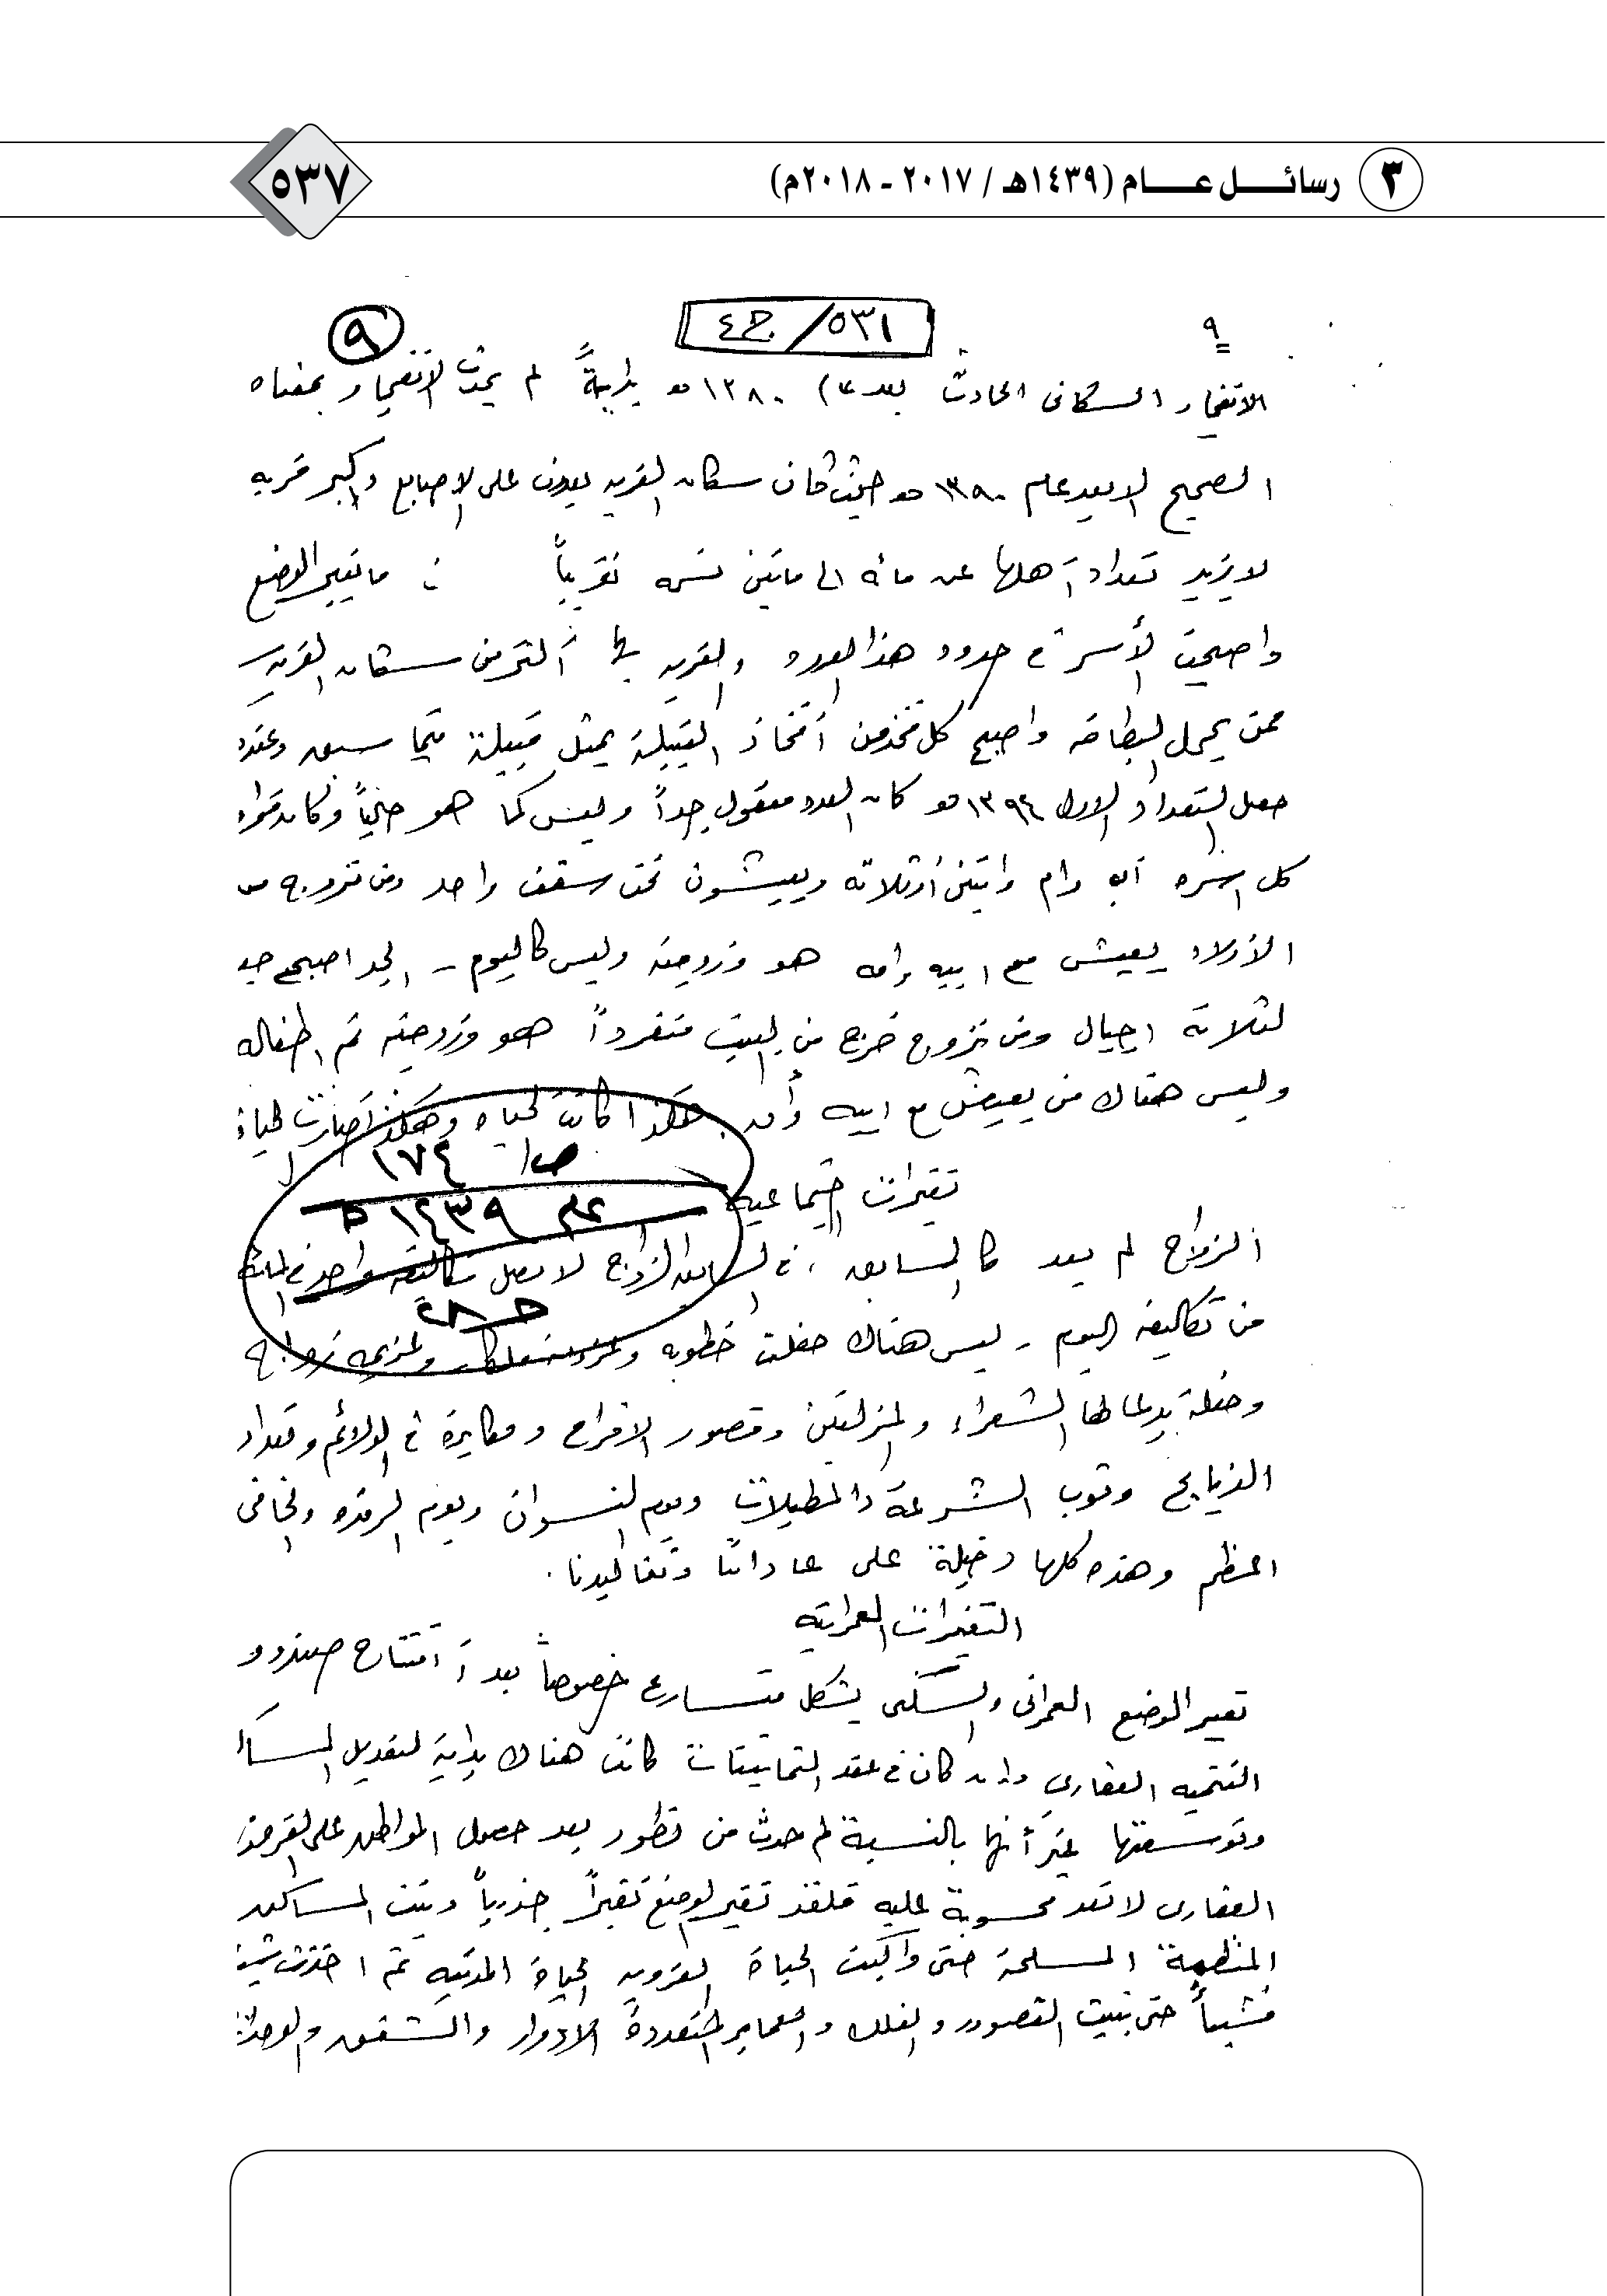 ٣ رسائل عام (١٤٣٩هـ / ٢٠١٧ - ٢٠١٨م)
٥٣٧
٩
٥٣١/ج٤
٩
الانفجار السكاني الحادث بعد عام ١٣٨٠هـ بدايةً لم يحدث الانفجار بمعناه
الصحيح الا بعد عام ١٣٩٠هـ حيث كان سكان القريه يعدون على الاصابع واكبر قريه
لا يزيد تعداد أهلها عن مائه الى مايتين نسمه تقريباً ما تغير الوضع
واصبحت الأسرة في حدود هذا العدد والقريه بها أكثر من سكان القريه
ممن يحمل البطاقه واصبح كل فخذ من أفخاذ القبيلة يمثل قبيلة فيما سبق وعندما
حصل التعداد الاول ١٣٩٤هـ كان العدد معقول جداً وليس كما هو حالياً وكان قوام
كل اسره أب وام واثنين أو ثلاثه ويعيشون تحت سقف واحد ومن تزوج من
الأولاد يعيش مع ابيه وامه هو وزوجته وليس كاليوم - الجد اصبح جد
لثلاثه اجيال ومن تزوج خرج من البيت منفرداً هو وزوجته ثم اطفاله
وليس هناك من يعيش مع ابيه وأمه. هكذا كانت الحياه وهكذا صارت الحياة
ص١ ١٧٤
تغيرات اجتماعيه
عام ١٤٣٩هـ
الزواج لم يعد كالسابق ، في السابق الزواج لا تصل تكاليفه واحد في المائة
من تكاليفه اليوم - ليس هناك حفلت خطوبه وعزيمه زواج
وحفلة بدعاطها الشعراء والمزلفين وقصور الافراح ومكابرة في الولائم وتعداد
الذبايح وثوب الشرعة والمطيلات ويوم النسوان ويوم الرفده والخافي
اعظم وهذه كلها دخيلة على عاداتنا وتقاليدنا.
التغيرات العمرانيه
تغير الوضع العمراني والسكني بشكل متسارع خصوصاً بعد افتتاح صندوق
التنميه العقاري وان كان في عقد الثمانينات كانت هناك بداية لتعديل المساكن
وتوسعتها غير أنها بالنسبة لم حدث من تطور بعد حصول المواطن على القرض
العقاري لا تعد محسوبة عليه فلقد تغير الوضع تغيراً جذرياً وبنيت المساكن
المنظمة المسلحة حتى واكبت الحياة القرويه الحياة المدنيه ثم اخذت شيئاً
فشيئاً حتى بنيت القصور والفلل والعماير المتعددة الادوار والشقق والوحدات